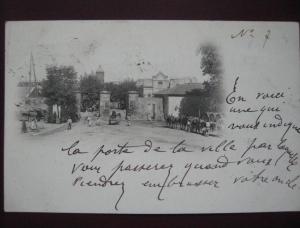 No 7
En voici
une qui
vous indique
la porte de la ville par laquelle
vous passerez quand vous
viendrez embrasser votre oncle